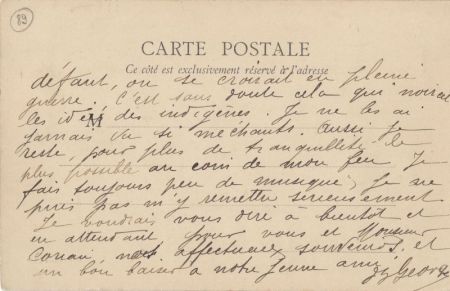 89
CARTE POSTALE
Ce côté est exclusivement réservé à l'adresse
défaut, on se croirait en pleine
guerre. C'est sans doute cela qui noircit
les idées des indigènes. Je ne les ai
M
jamais vu si méchants. Aussi je
reste pour plus de tranquillité le
plus possible au coin de mon feu. Je
fais toujours peu de musique, je ne
puis pas m'y remettre sérieusement
Je voudrais vous dire à bientôt et
en attendant pour vous et Monsieur
Conan, nos affectueux souvenirs et
un bon baiser à notre jeune ami
George